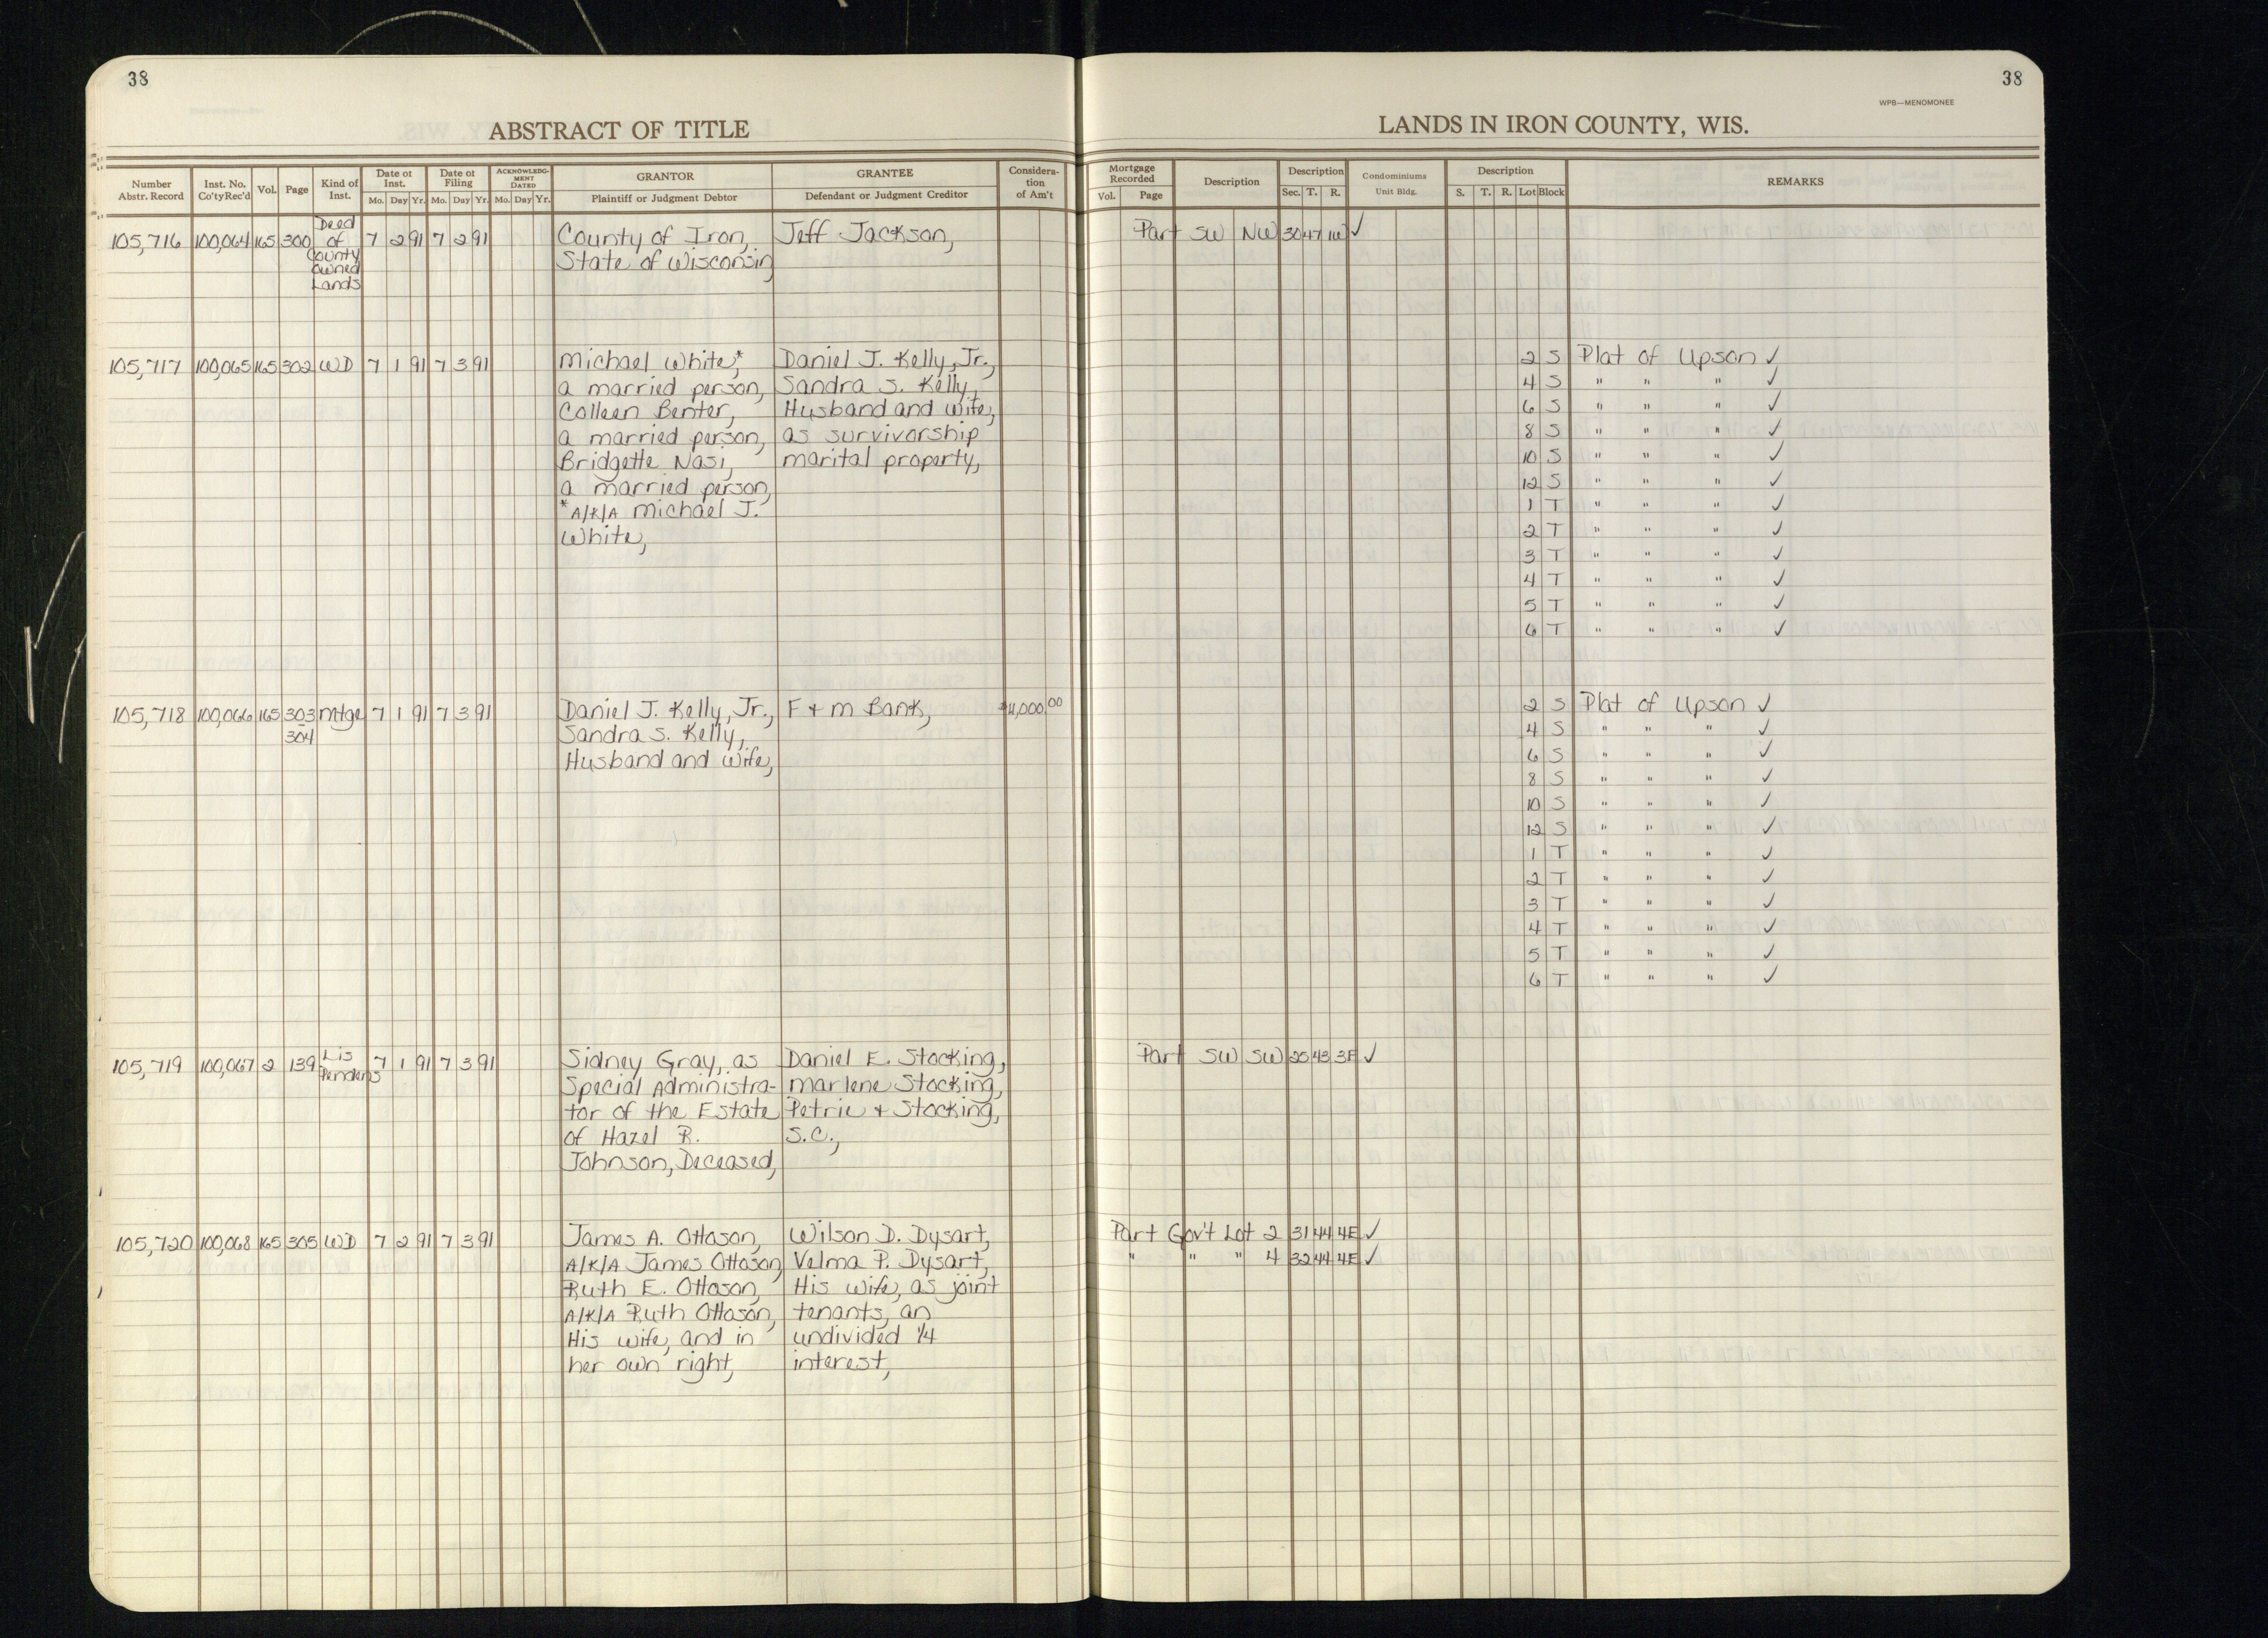 38
38
WPB—MENOMONEE
ABSTRACT OF TITLE
LANDS IN IRON COUNTY, WIS.
Number Abstr. Record | Inst. No. Co'ty Rec'd | Vol. | Page | Kind of Inst. | Date of Inst. Mo. Day Yr. | Date of Filing Mo. Day Yr. | ACKNOWLEDGMENT DATED Mo. Day Yr. | GRANTOR Plaintiff or Judgment Debtor | GRANTEE Defendant or Judgment Creditor | Consideration of Am't | Mortgage Recorded Vol. Page | Description | Description Sec. T. R. | Condominiums Unit Bldg. | Description S. T. R. Lot Block | REMARKS
105,716 100,064 165 300 Deed of County Owned Lands 7 2 91 7 2 91 County of Iron, Jeff Jackson, Part SW NW 30 47 1W ✓
State of Wisconsin
105,717 100,065 165 302 WD 7 1 91 7 3 91 Michael White,* Daniel J. Kelly, Jr., 2 S Plat of Upson ✓
a married person, Sandra S. Kelly, 4 S " " " ✓
Colleen Benter, Husband and Wife, 6 S " " " ✓
a married person, as survivorship 8 S " " " ✓
Bridgette Nasi, marital property, 10 S " " " ✓
a married person, 12 S " " " ✓
*A/K/A Michael J. 1 T " " " ✓
White, 2 T " " " ✓
3 T " " " ✓
4 T " " " ✓
5 T " " " ✓
6 T " " " ✓
105,718 100,066 165 303 Mtge 7 1 91 7 3 91 Daniel J. Kelly, Jr., F + M Bank, 2 S Plat of Upson ✓
304 Sandra S. Kelly, 4 S " " " ✓
Husband and Wife, 6 S " " " ✓
8 S " " " ✓
10 S " " " ✓
12 S " " " ✓
1 T " " " ✓
2 T " " " ✓
3 T " " " ✓
4 T " " " ✓
5 T " " " ✓
6 T " " " ✓
105,719 100,067 2 139 Lis Pendens 7 1 91 7 3 91 Sidney Gray, as Daniel E. Stocking, Part SW SW 25 43 3E ✓
Special Administra- Marlene Stocking,
tor of the Estate Petrie + Stocking,
of Hazel R. S.C.,
Johnson, Deceased,
105,720 100,068 165 305 WD 7 2 91 7 3 91 James A. Ottoson, Wilson D. Dysart, Part Gov't Lot 2 31 44 4E ✓
A/K/A James Ottoson, Velma P. Dysart, " " " 4 32 44 4E ✓
Ruth E. Ottoson, His wife, as joint
A/K/A Ruth Ottoson, tenants, an
His wife, and in undivided 1/4
her own right, interest,